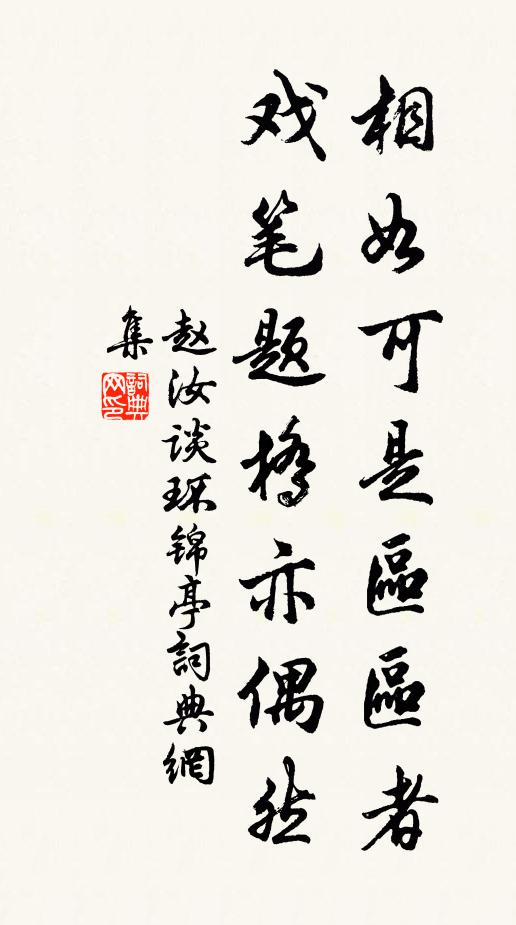 相如可是區區者
戏笔题桥亦偶然
赵汝谈环锦亭詞典網
集
詞典
网印